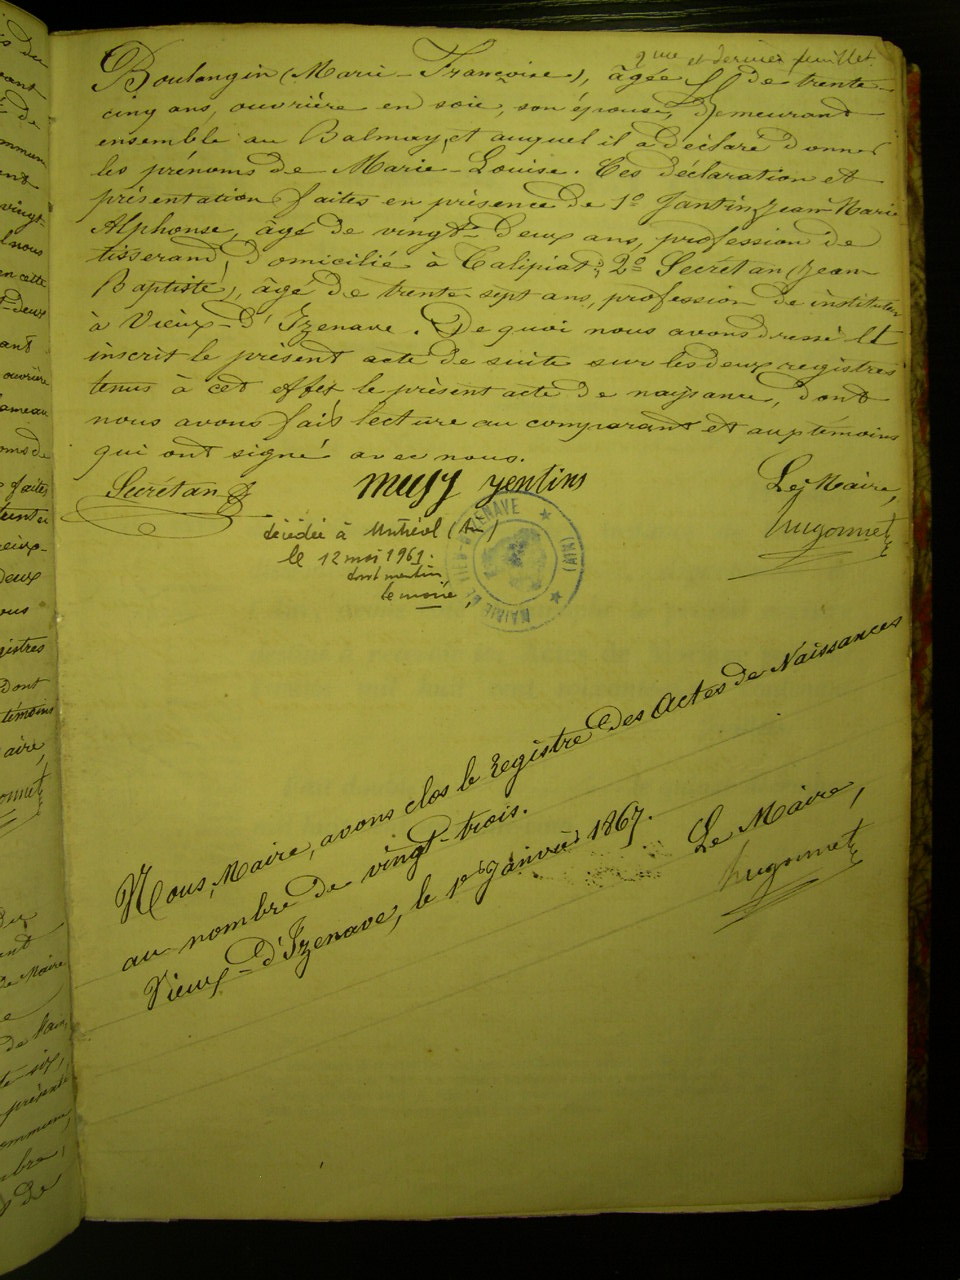 9me et dernier feuillet
Boulangin (Marie-Françoise), âgée de trente
cinq ans, ouvrière en soie, son épouse, demeurant
ensemble au Balmay, et auquel il a déclaré donner
les prénoms de Marie-Louise. Ces déclaration et
présentation faites en présence de 1º Jantin, Jean-Marie
Alphonse, âgé de vingt-deux ans, profession de
tisserand, domicilié à 2º Secrétan (Jean-
Baptiste), âgé de trente-sept ans, profession de instituteur
à Vieux-d'Izenave. De quoi nous avons dressé et
inscrit le présent acte de suite sur les deux registres
tenus à cet effet, le présent acte de naissance, dont
nous avons fait lecture au comparant et aux témoins
qui ont signé avec nous.
Secrétan musy yentins Le Maire,
hugonnet
décédée à (Ain)
le 12 mai 1961.
dont mention
le maire
MAIRIE DE VIEU-D'IZENAVE (AIN)
Nous, Maire, avons clos le Registre des Actes de Naissances
au nombre de vingt-trois.
Vieux-d'Izenave, le 1er Janvier 1867.
Le Maire,
hugonnet